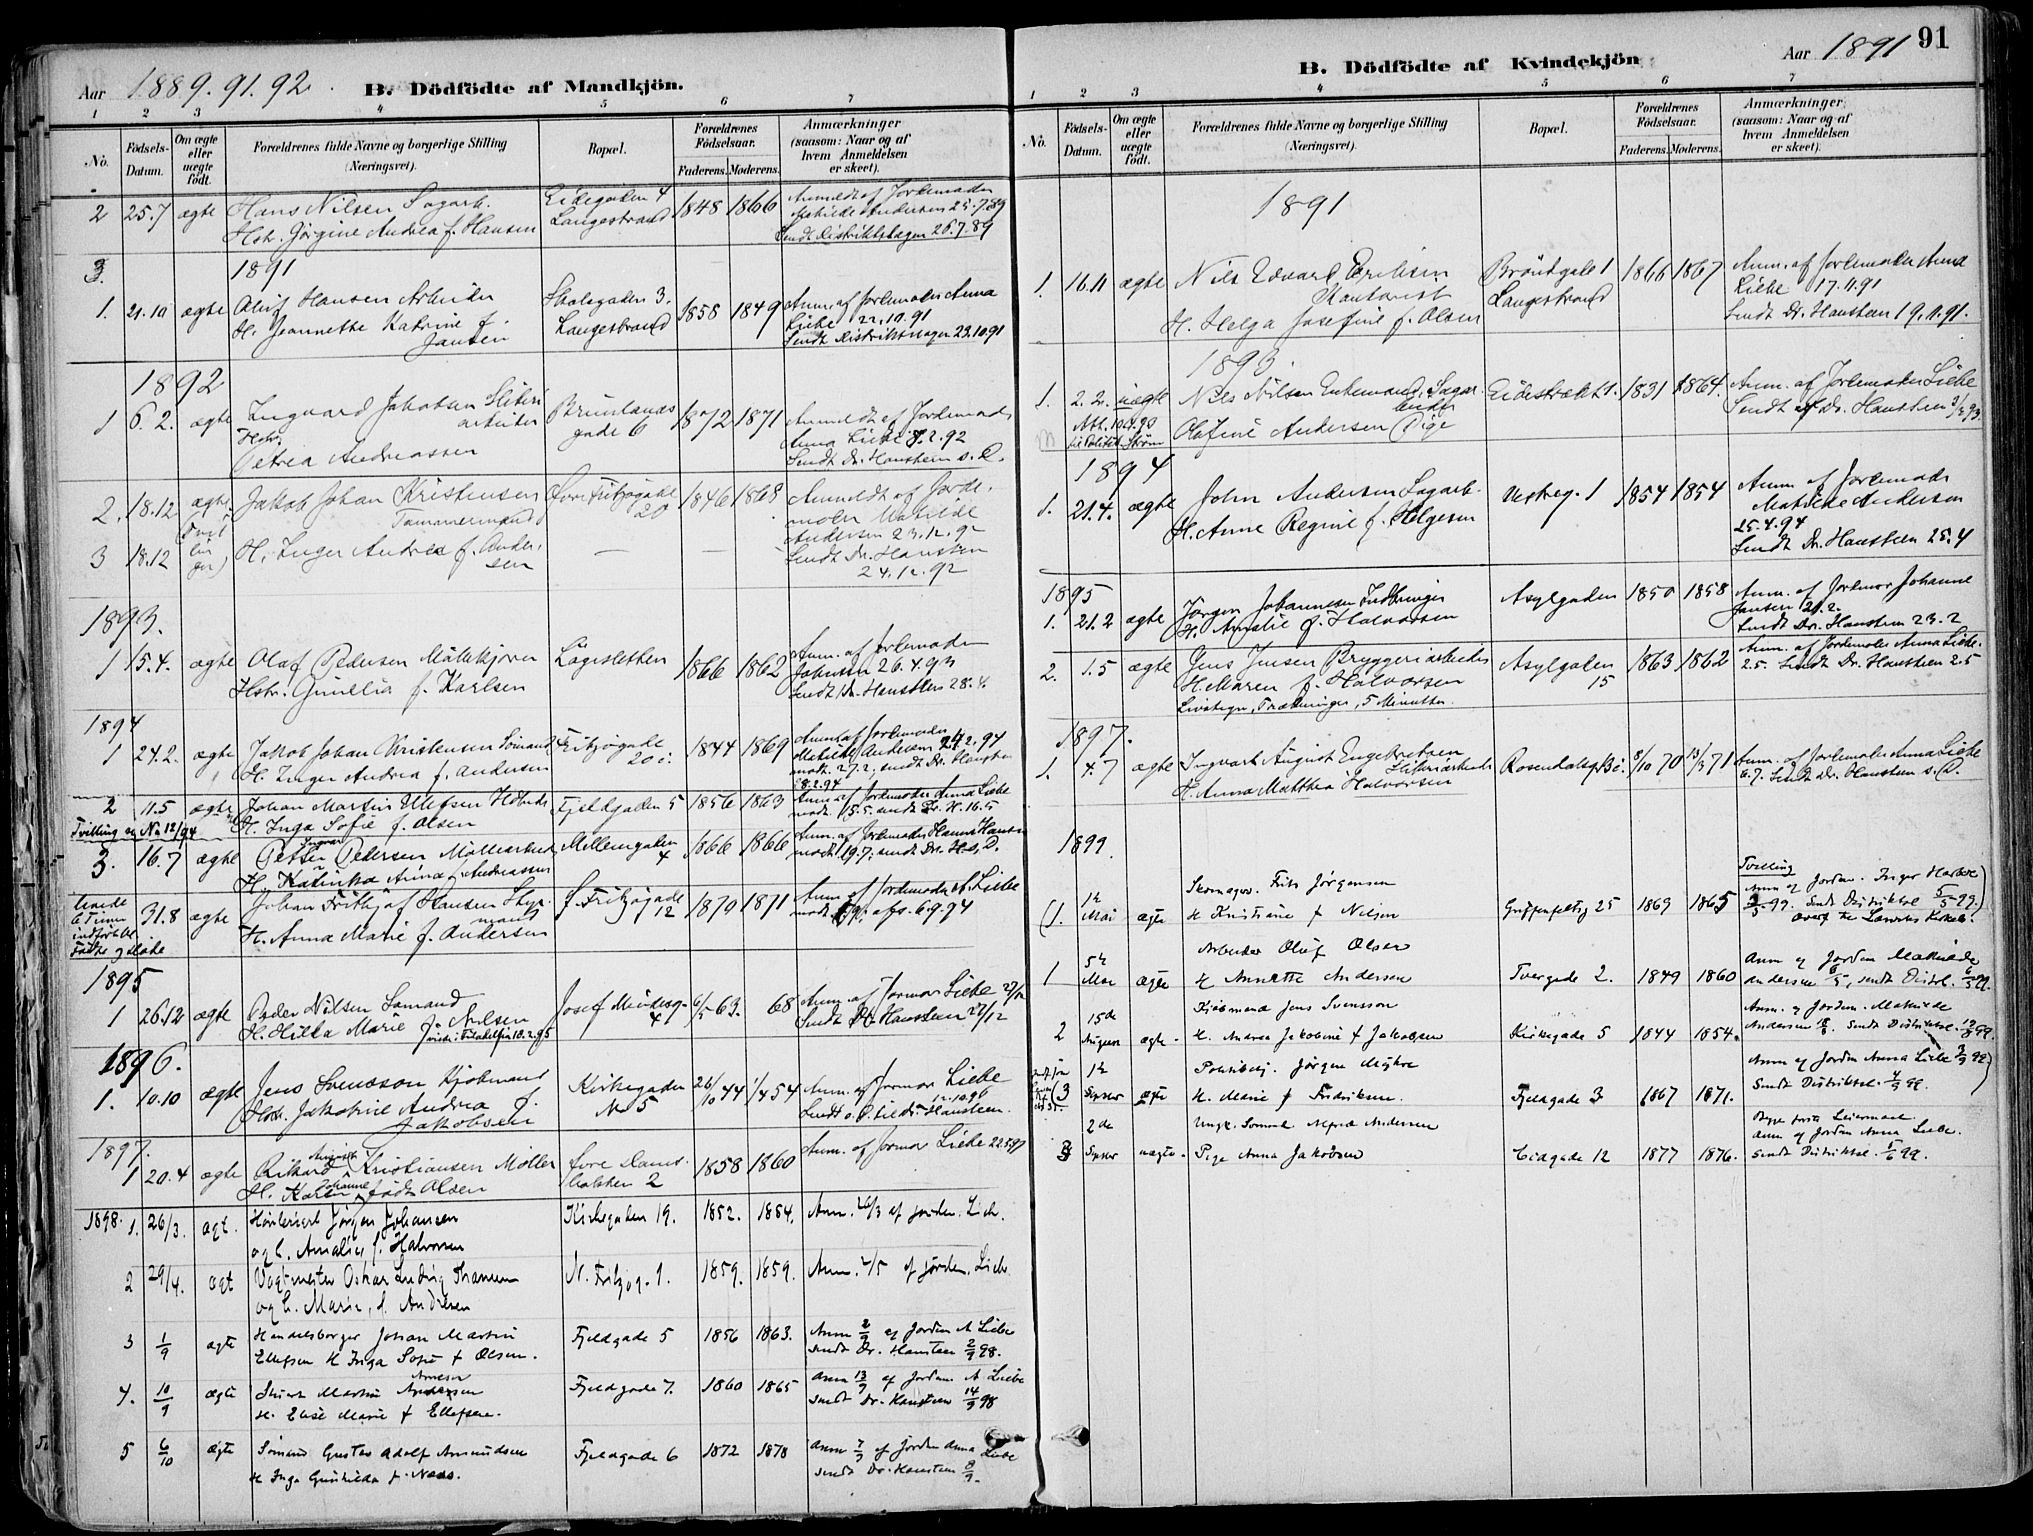 Aar 1889.91.92.
B. Dödfödte af Mandkjön.
1 2 3 4 5 6 7
No.
Födsels-Datum.
Om ægte eller uægte födt.
Forældrenes fulde Navne og borgerlige Stilling
(Næringsvei).
Bopæl.
Forældrenes Födselsaar.
Faderens. Moderens.
Anmærkninger
(saasom: Naar og af
hvem Anmeldelsen
er skeet).
2 25.7 ægte Hans Nilsen Sagarb. Eidegaden 4 1848 1866 Anmeldt af Jordemoder
Hstr. Jørgine Andrea f. Hansen Langestrand Matilde Andersen 25.7.89
Sendt Distriktslægen 26.7.89
3.
1891
1. 21.10 ægte Oluf Hansen Arbeider Skolegaden 3. 1858 1849 Anm. af Jordemoder Anna
H. Jeannette Katrine f. Langestrand Liebe 22.10.91
Jansen Sendt Distriktslægen 23.10.91
1892
1 6.2. ægte Ingvard Jakobsen Sliberi 1872 1871 Anmeldt af Jordemoder
arbeider gade 6 Anna Liebe 7.2.92
Hstr.
Petrea Andreassen Sendt Dr. Hansteen s. D.
2. 18.12 ægte Jakob Johan Kristensen Øvre Fritzøgade 1846 1869 Anmeldt af Jorde-
Tømmermand 20 moder Matilde
Andersen 23.12.92
3 18.12 H. Inger Andrea f. Ander- — — Sendt Dr. Hansteen
sen 24.12.92
1893.
1 15.4. ægte Olaf Pedersen Møllekjører Lågesletten 1866 1862 Anm. af Jordemoder
Johnsen 26.4.93
Hstr. Gunellia f. Karlsen Sendt Dr. Hansteen 28.4.
1894
1 24.2. ægte Jakob Johan Kristensen Sømand Fritzøgade 1844 1869 Anm. af Jordemoder
H. Inger Andrea f. Andersen 20 Matilde Andersen 24.2.94
modt. 27.2, sendt Dr. Hansteen
28.2.94
2 11.5 ægte Johan Martin Ellefsen Fjeldgaden 5 1856 1863 Anm. af Jordemoder Anna Liebe
Tvilling og No 12/94 H. Inga Sofie f. Olsen modt. 15.5. sendt Dr. H. 16.5
3. 16.7 ægte Petter Ingvar Pedersen Møllearbeid. Mellemgaden 1866 1866 Anm. af Jordemoder Hanna Hansen
H. Katinka Anna f. Andreassen 4 modt. 19.7. sendt Dr. H. s. D.
31.8 ægte Johan Fritjof Hansen Ø. Fritzøgade 1870 1871 Anm. af Jordemoder A. Liebe
12
H. Anna Marie f. Andersen
1895
1 26.12 ægte Peder Nilsen Sømand Josef Müllersg. 6/5 63. 68 Anm. af Jormor Liebe 27/12
H. Hilda Marie f. Nilsen 4 Sendt Dr. Hansteen 27/12
1896.
1. 10.10 ægte Jens Svensson Kjøbmand Kirkegaden 26/10 44 1/4 54 Anm. af Jormor Liebe
Hstr. Jakobine Andrea f. No 5 12.10.96
Jakobsen
1897.
1 20.4 ægte Rikard August Kristiansen Møller 1858 1860 Anm. af Jormor Liebe 22.5.97
H. Karen Johanne født Olsen 2
1898. 1. 26/3. ægt. Jörgen Johansen Kirkegaden 19. 1852. 1854. Anm. 26/3 af jordm. Lieb.
og h. Amalie f. Halvorsen
2 29/4. ægt Vagtmester Oskar Ludvig N. Fritzøg. 1. 1859. 1859. Anm. 2/5 af jordem. Lieb.
og h. Marie, f. Andresen
3 1/9 ægte Handelsborger Johan Martin Fjeldgade 5 1856 1863. Anm 2/9 af Jordm A Liebe
Ellefsen H Inga Sofie f Olsen. sendt Dr. Hansteen 2/9 98.
4. 10/9 ægte Martin Andersen Arnesen Fjeldgade 7. 1860 1865 Anm 13/9 af Jordm A Liebe
H. Elise Marie f Ellefsen. sendt Dr. Hansteen 14/9 98
5 6/10 ægte Sömand Gustav Adolf Amundsen Fjeldgade 6 1872 1878 Anm 7/9 af Jordm Anna Liebe
H Inga Gunhilda f. Næss. sendt Dr. Hansteen 8/9.
B. Dödfödte af Kvindekjön
Aar 1891 91
1 2 3 4 5 6 7
No.
Födsels-Datum.
Om ægte eller uægte födt.
Forældrenes fulde Navne og borgerlige Stilling
(Næringsvei).
Bopæl.
Forældrenes Födselsaar.
Faderens. Moderens.
Anmærkninger
(saasom: Naar og af
hvem Anmeldelsen
er skeet).
1891
1. 16.11 ægte Nils Edvard Eriksen 1 1866 1867 Anm. af Jordemoder Anna
Kontorist Langestrand Liebe 17.11.91
H. Helga Josefine f. Olsen Sendt Dr. Hansteen 19.11.91.
1893.
1. 2.2. uægte Nils Nilsen Enkemand, Sagar- Eidestrækket 1. 1831 1864. Anm. af Jordemoder Liebe
beider Sendt Dr. Hansteen 3/2 93.
Olefine Andersen Pige
1894
1. 21.4. ægte John Andersen Sagarb. Vestreg. 1 1854 1854 Anm. af Jordemoder
H. Anne Regine f. Helgesen Matilde Andersen
25.4.94
Sendt Dr. Hansteen 25.4
1895
1. 21.2 ægte Jørgen Johannesen Asylgaden 1850 1858 Anm. af Jordmor Johanne
H. Amalie f. Halvorsen Jansen 21.2.
Sendt Dr. Hansteen 23.2
2. 1.5 ægte Jens Jensen Bryggeriarbeider Asylgaden 1863 1862 Anm. af Jordemoder Anna Liebe.
H. Maren f. Halvorsen 15 2.5. Sendt Dr. Hansteen 2.5
Livstegn, Trækninger, 5 Minutter.
1897.
1. 4.7 ægte Ingvart August Engebretsen Rosendalsg. 8/10 70 13/3 71 Anm. af Jordemoder Anna Liebe
Sliberiarbeider 6.7. Sendt Dr. Hansteen s. D.
H. Anna Matthea Halvorsen
1899.
Tvilling
1. 1ste Mai ægte Skomager. Frits Jörgensen Griffenfeldtsg 25 1869 1865 Anm af Jordm. Inger
H Kristine f Nilsen 99. sendt Distriktsl. 5/5 99.
1 5te Mai ægte Arbeider Oluf Olsen Tvergade 2. 1849 1860 Anm af Jordm Mathilde
H Annette Andersen Andersen 6/5, sendt Distrl. 6/5 99.
2 15de August ægte. Kjöbmand Jens Svensson Kirkegade 5 1844 1854. Anm. af Jordm. Mathilde
H. Andrea Jakobine f Jakobsen Andersen. Sendt Distriktsl.
3 1ste Septbr ægte Politibetj. Jörgen Fjeldgade 3 1867 1871. Anm af Jordm Anna Liebe
H. Marie f Fredriksen. Sendt Distriktsl. 4/9 99.
3 2de Septbr uægte. Ungk. Sömand Alfred Andersen Eidgade 12 1877 1876. Begge første Leiermaal.
Pige Anna Jakobsen Anm af Jordm Anna Liebe.
sendt Distriktsl. 5/9 99.